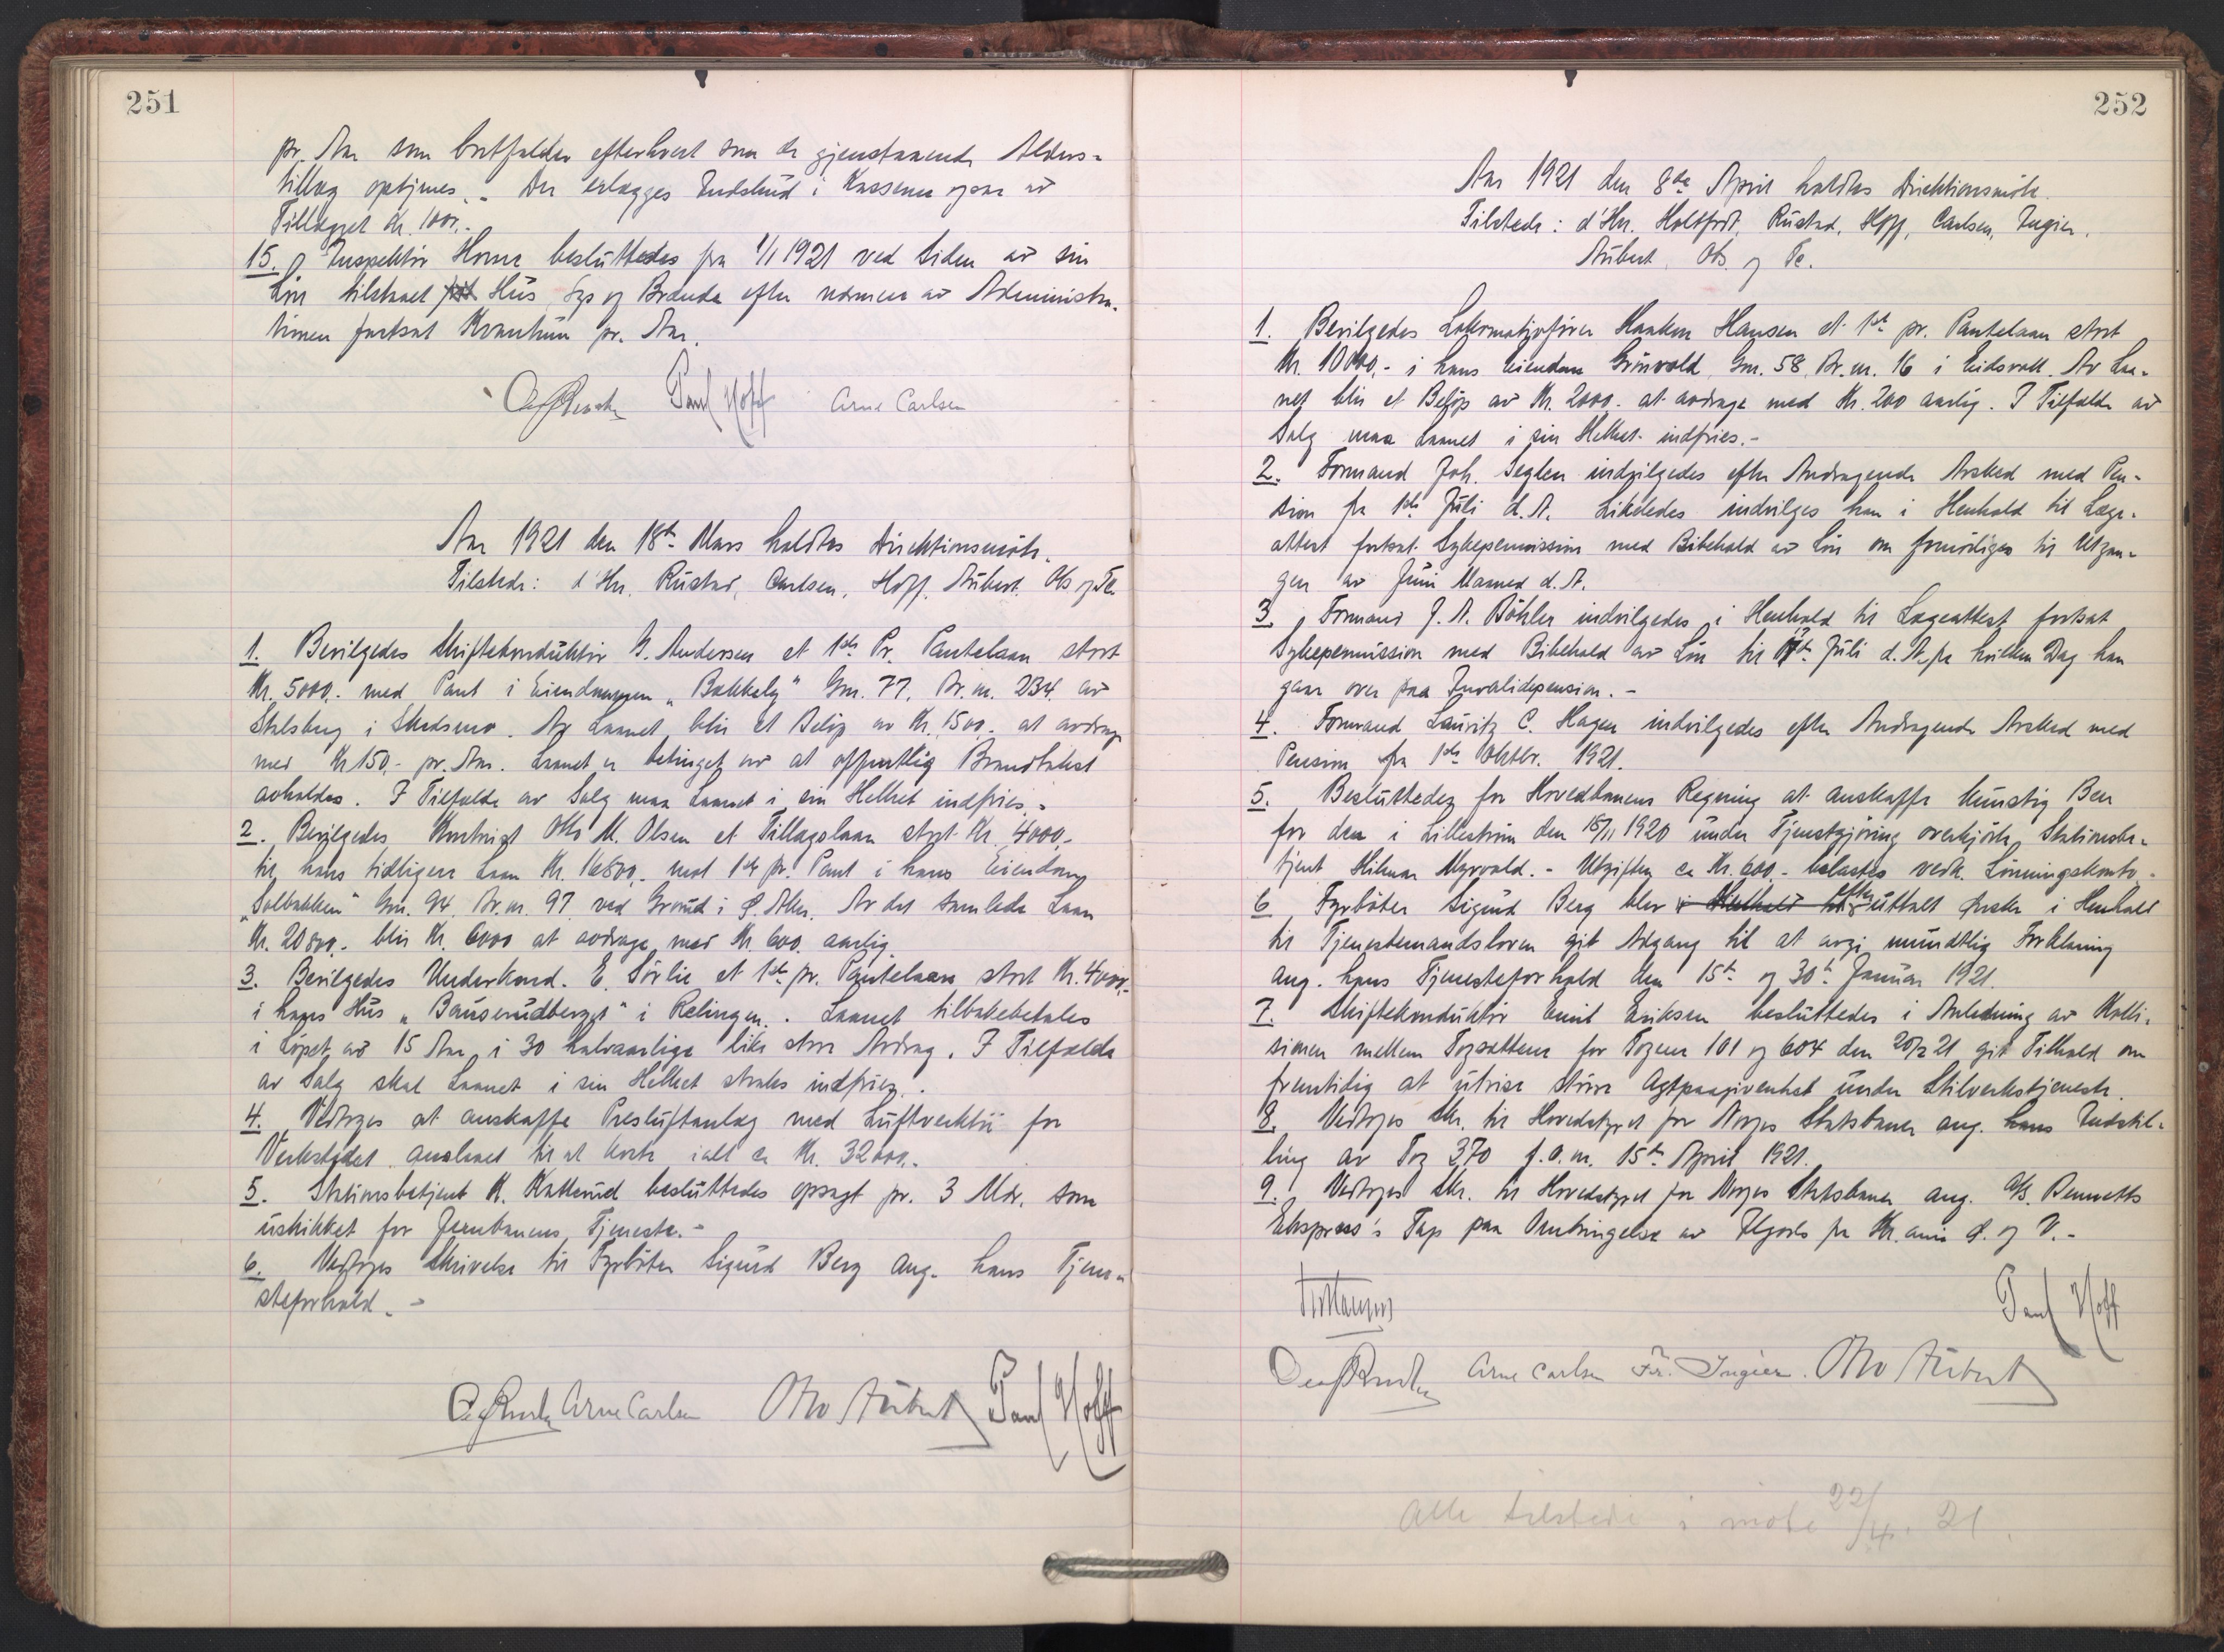 251
pr. Aar som bortfalder efterhvert som de gjenstaaende Alders-
tillæg optjenes. - Der erlægges Indskud i Kassene ogsaa av
Tillægget Kr. 1000.-
15. Inspektör Horne besluttedes fra 1/1 1921 ved Siden av sin
Lön tilstaaet frit Hus, Lys og Brænde efter nærmere av Administra-
tionen fastsat Kvantum pr. Aar.
Paul Hoff Arne Carlsen
Aar 1921 den 18de Mars holdtes Direktionsmöte.
Tilstede: d'Hrr. Rustad, Carlsen, Hoff, Aubert, Obs og Te.
1. Bevilgedes Skiftekonduktör G. Andersen et 1ste Pr. Pantelaan stort
Kr. 5000.- med Pant i Eiendommen "Bakkely" Gnr. 77, Br. nr. 234 av
Stalsberg i Skedsmo. Av Laanet blir et Belöp av Kr. 1500.- at avdrage
med Kr 150.- pr. Aar. Laanet er betinget av at offentlig Brandtakst
avholdes. I Tilfælde av Salg maa Laanet i sin Helhet indfries.-
2. Bevilgedes Kontorist Otto M. Olsen et Tillægslaan stort Kr. 4000.-
til hans tidligere Laan Kr. 16800.- mot 1ste pr. Pant i hans Eiendom
"Solbakken" Gnr. 94, Br. nr. 97 ved Grorud i Ø. Aker. Av det samlede Laan
Kr. 20800.- blir Kr. 6000 at avdrage med Kr 600 aarlig.
3. Bevilgedes Underkond. E. Sörlie et 1ste pr. Pantelaan stort Kr. 4000.-
i hans Hus "Bauserudberget" i Relingen. Laanet tilbakebetales
i Löpet av 15 Aar i 30 halvaarlige like store Avdrag. I Tilfælde
av Salg skal Laanet i sin Helhet straks indfries.
4. Vedtoges at anskaffe Presluftanlæg med Luftverktöi for
Verkstedet anslaaet til at koste ialt ca Kr. 32000.-
5. Stationsbetjent K. Katterud besluttedes opsagt pr. 3 Mdr. som
uskikket for Jernbanens Tjeneste.-
6. Vedtoges Skrivelse til Fyrböter Sigurd Berg ang. hans Tjene-
steforhold.-
Arne Carlsen Otto Aubert Paul Hoff
252
Aar 1921 den 8de April holdtes Direktionsmöte.
Tilstede: d'Hrr. Holtfodt, Rustad, Hoff, Carlsen, Ingier,
Aubert, Obs. og Te.
1. Bevilgedes Lokomotivförer Haakon Hansen et 1ste pr. Pantelaan stort
Kr. 10000.- i hans Eiendom Grünvold Gnr. 58, Br. nr. 16 i Eidsvoll. Av Laa-
net blir et Belöp av Kr. 2000.- at avdrage med Kr. 200 aarlig. I Tilfælde av
Salg maa Laanet i sin Helhet indfries.-
2. Formand Joh. Seglen indvilgedes efter Andragende Avsked med Pen-
sion fra 1ste Juli d.A. Likeledes indvilges han i Henhold til Læge-
attest fortsat Sykepermission med Bibehold av Lön om fornödiges til Utgan-
gen av Juni Maaned d.A.
3. Formand J. A. Böhler indvilgedes i Henhold til Lægeattest fortsat
Sykepermission med Bibehold av Lön til Juli d. A. fra hvilken Dag han
gaar over paa Invalidepension.-
4. Formand Lauritz C. Hagen indvilgedes efter Andragende Avsked med
Pension fra 1ste Oktbr. 1921.
5. Besluttedes for Hovedbanens Regning at anskaffe kunstig Ben
for den i Lilleström den 15/11 1920 under Tjenestgjöring overkjörte Stationsbe-
tjent Hilmar Myrvold.- Utgiften ca Kr. 600.- belastes vedk. Lönningskonto.-
6. Fyrböter Sigurd Berg blev i Henhold til efter uttalt Önske i Henhold
til Tjenestemandsloven git Adgang til at avgi mundtlig Forklaring
ang. hans Tjenesteforhold den 15de og 30te Januar 1921.
7. Skiftekonduktör Emil Eriksen besluttedes i Anledning av Kolli-
sionen mellem Togsættene for Togene 101 og 604 den 20/2 21 git Tilhold om
fremtidig at utvise större Agtpaagivenhet under Stilverkstjeneste.
8. Vedtoges Skr. til Hovedstyret for Norges Statsbaner ang. hans Indstil-
ling av Tog 370 f.o.m. 15de April 1921.
9. Vedtoges Skr. til Hovedstyret for Norges Statsbaner ang. A/S Bennetts
Ekspress's Tap paa Ombringelse av Ilgods fra Kr.ania Ø. og V.-
Paul Hoff
Arne Carlsen Fr. Ingier. Otto Aubert
Alle tilstede i möte 22/4. 21.